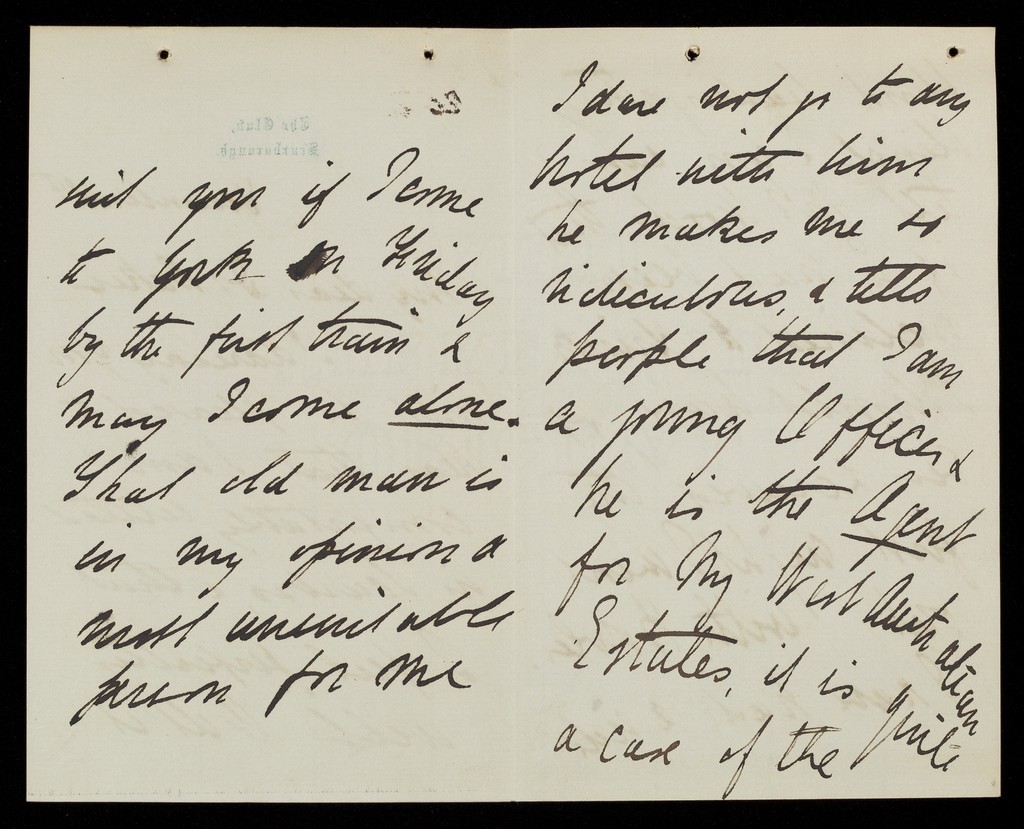 suit you if I come
to York on Friday
by the first train &
may I come alone.
That old man is
in my opinion a
most unsuitable
person for me
I dare not go to any
hotel with him
he makes me so
ridiculous, & tells
people that I am
a young Officer &
he is the Agent
for My West Australian
Estates, it is quite
a case of the
The Club,
Scarborough.